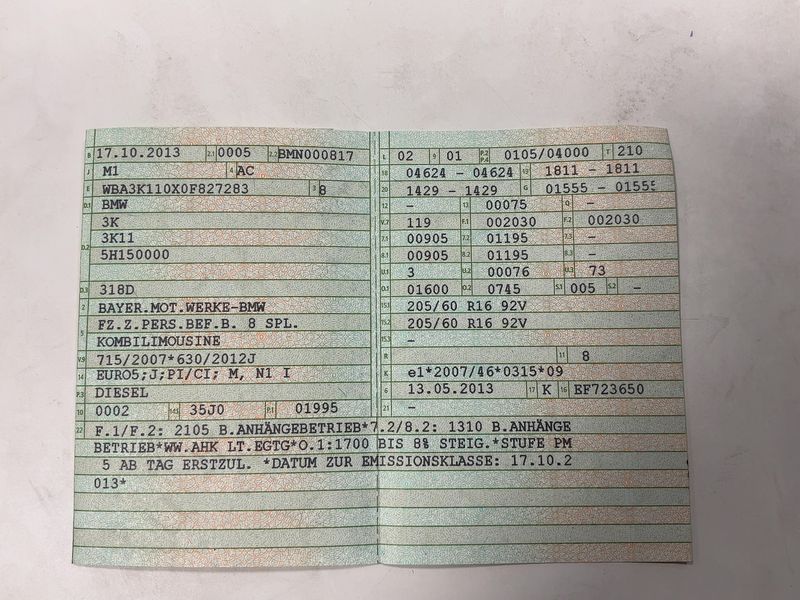 B 17.10.2013 2.1 0005 2.2 BMN000817
J M1 4 AC
E WBA3K110X0F827283 3 8
D.1 BMW
3K
3K11
D.2 5H150000
D.3 318D
2 BAYER.MOT.WERKE-BMW
5 FZ.Z.PERS.BEF.B. 8 SPL.
KOMBILIMOUSINE
V.9 715/2007*630/2012J
14 EURO5;J;PI/CI; M, N1 I
P.3 DIESEL
10 0002 14.1 35J0 P.1 01995
L 02 9 01 P.2 P.4 0105/04000 T 210
18 04624 - 04624 19 1811 - 1811
20 1429 - 1429 G 01555 - 01555
12 - 13 00075 Q -
V.7 119 F.1 002030 F.2 002030
7.1 00905 7.2 01195 7.3 -
8.1 00905 8.2 01195 8.3 -
U.1 3 U.2 00076 U.3 73
O.1 01600 O.2 0745 S.1 005 S.2 -
15.1 205/60 R16 92V
15.2 205/60 R16 92V
15.3 -
R 11 8
K e1*2007/46*0315*09
6 13.05.2013 17 K 16 EF723650
21 -
22 F.1/F.2: 2105 B.ANHÄNGEBETRIEB*7.2/8.2: 1310 B.ANHÄNGE
BETRIEB*WW.AHK LT.EGTG*O.1:1700 BIS 8% STEIG.*STUFE PM
5 AB TAG ERSTZUL. *DATUM ZUR EMISSIONSKLASSE: 17.10.2
013*